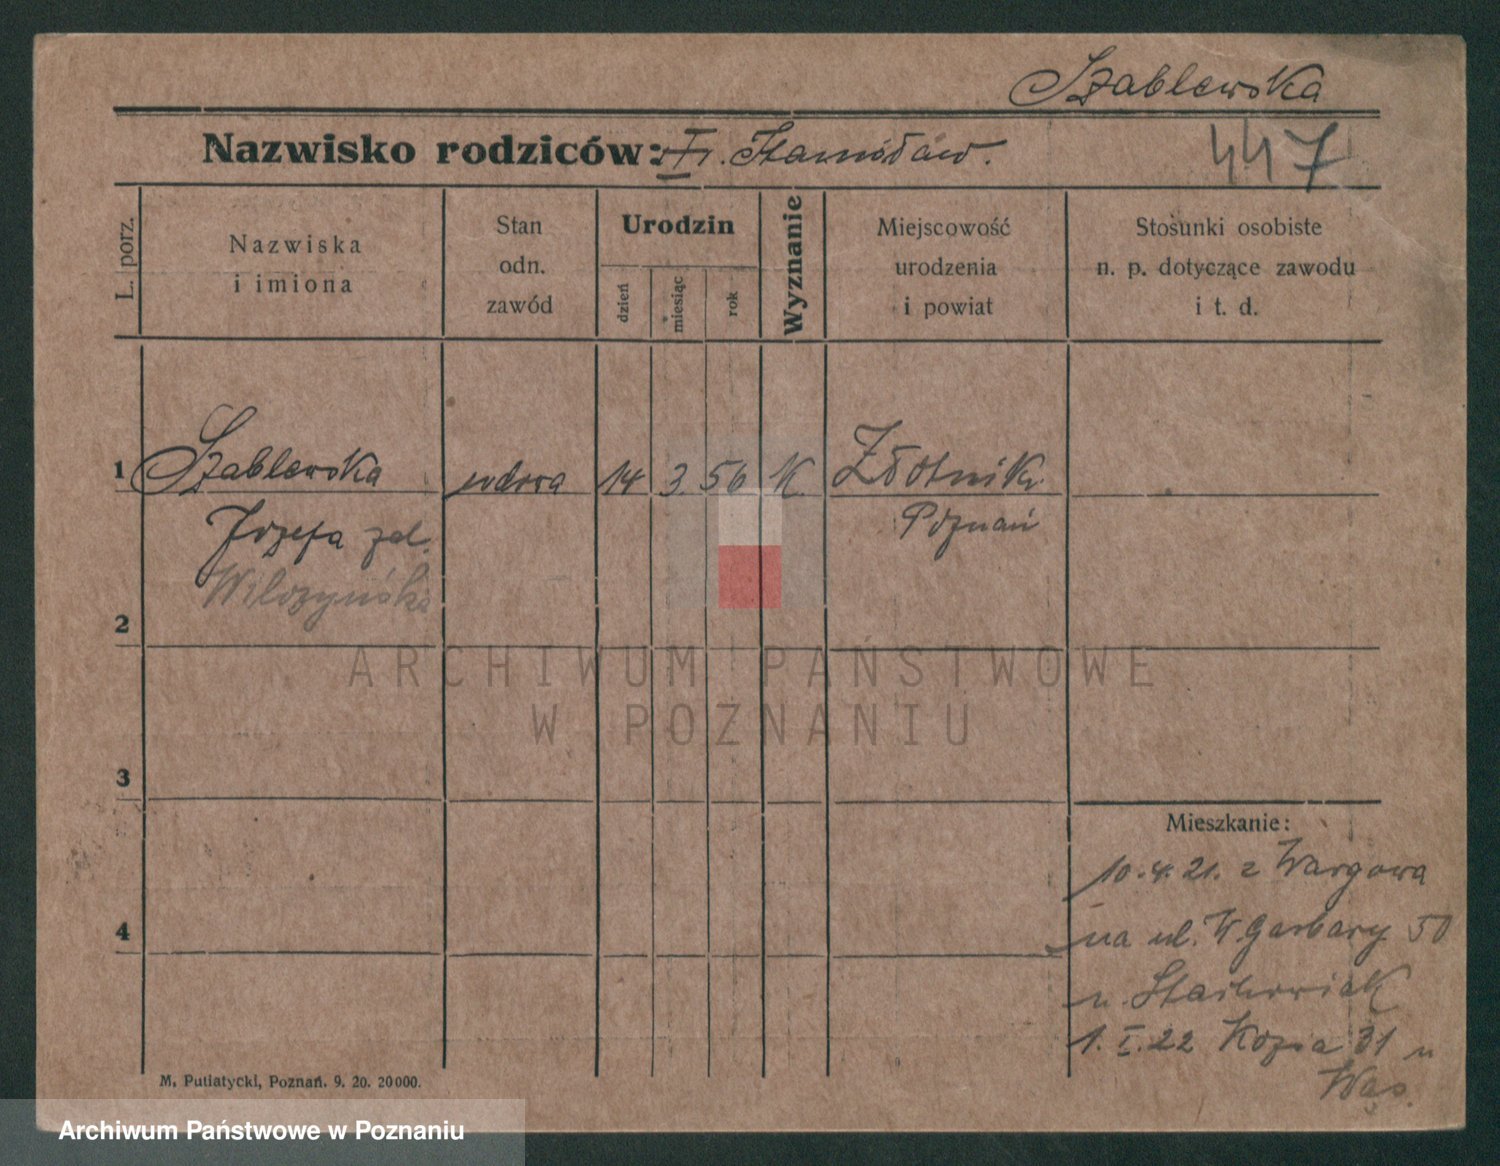 Szablewska
Nazwisko rodziców: Stanisław.
447
L. porz.
Nazwiska
i imiona
Stan
odn.
zawód
Urodzin
dzień
miesiąc
rok
Wyznanie
Miejscowość
urodzenia
i powiat
Stosunki osobiste
n. p. dotyczące zawodu
i t. d.
1 Szablewska wdowa 14 3. 56 K. Złotniki
Józefa zd. Poznań
Wilczyńska
2
3
4
Mieszkanie:
10.4.21. z Wargowa
na ul. W. Garbary 50
u. Stachowiak
1. I. 22 Kozia 31 u
Wąs.
M. Putiatycki, Poznań. 9. 20. 20000.
ARCHIWUM PAŃSTWOWE
W POZNANIU
Archiwum Państwowe w Poznaniu